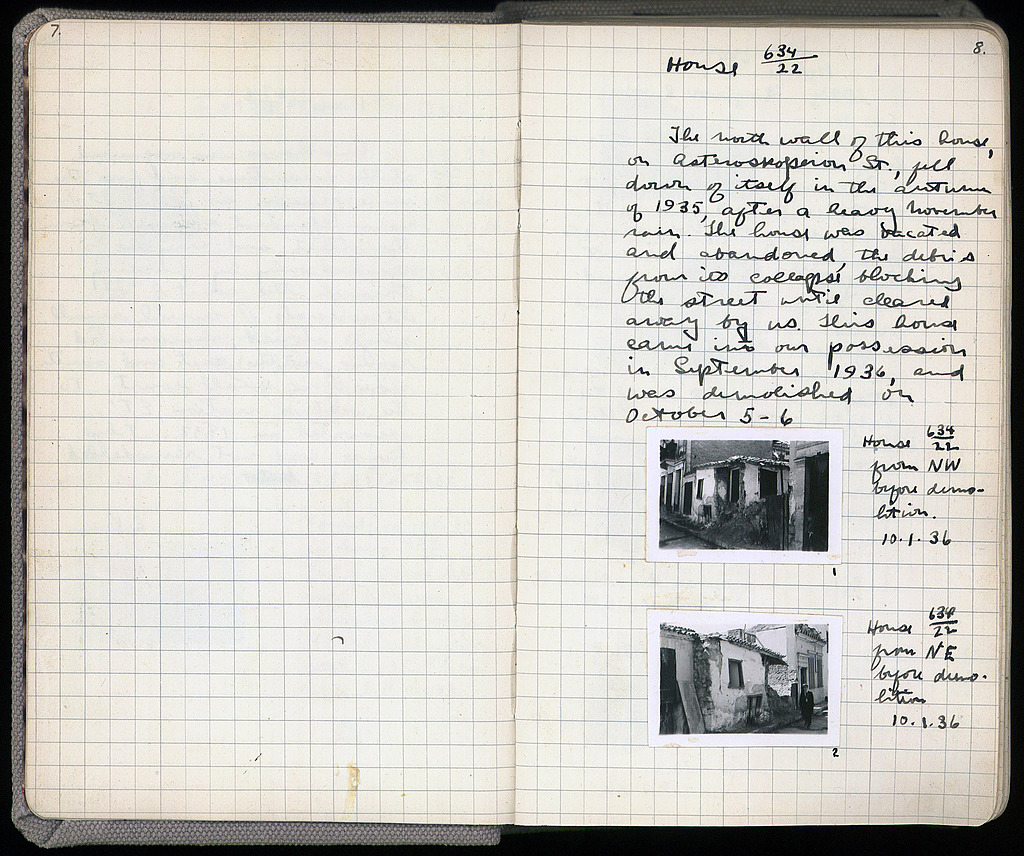 7.
8.
House 634/22
The north wall of this house,
on Asteroskopeion St., fell
down of itself in the autumn
of 1935, after a heavy November
rain. The house was vacated
and abandoned, the debris
from its collapse blocking
the street until cleared
away by us. This house
came into our possession
in September 1936, and
was demolished on
October 5-6
House 634/22
from NW
before demo-
lition.
10.1.36
1
House 634/22
from NE
before demo-
lition
10.1.36
2